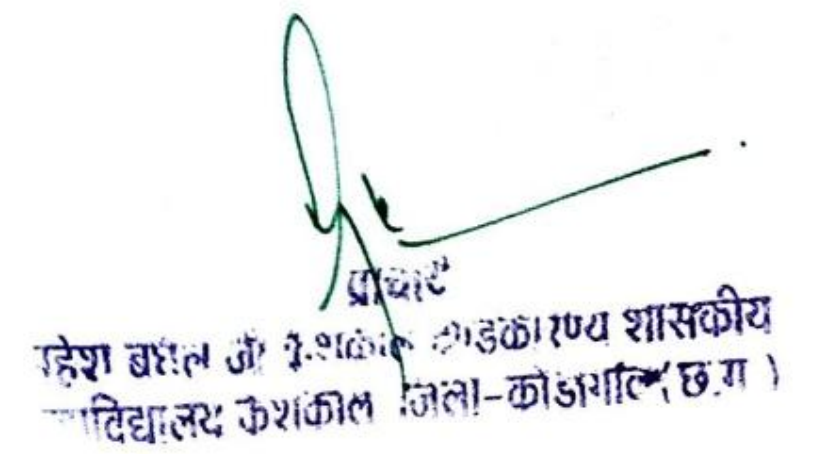 प्राचार्य
महेश बघेल जी केशकाल दण्डकारण्य शासकीय
महाविद्यालय केशकाल जिला-कोंडागांव (छ.ग )